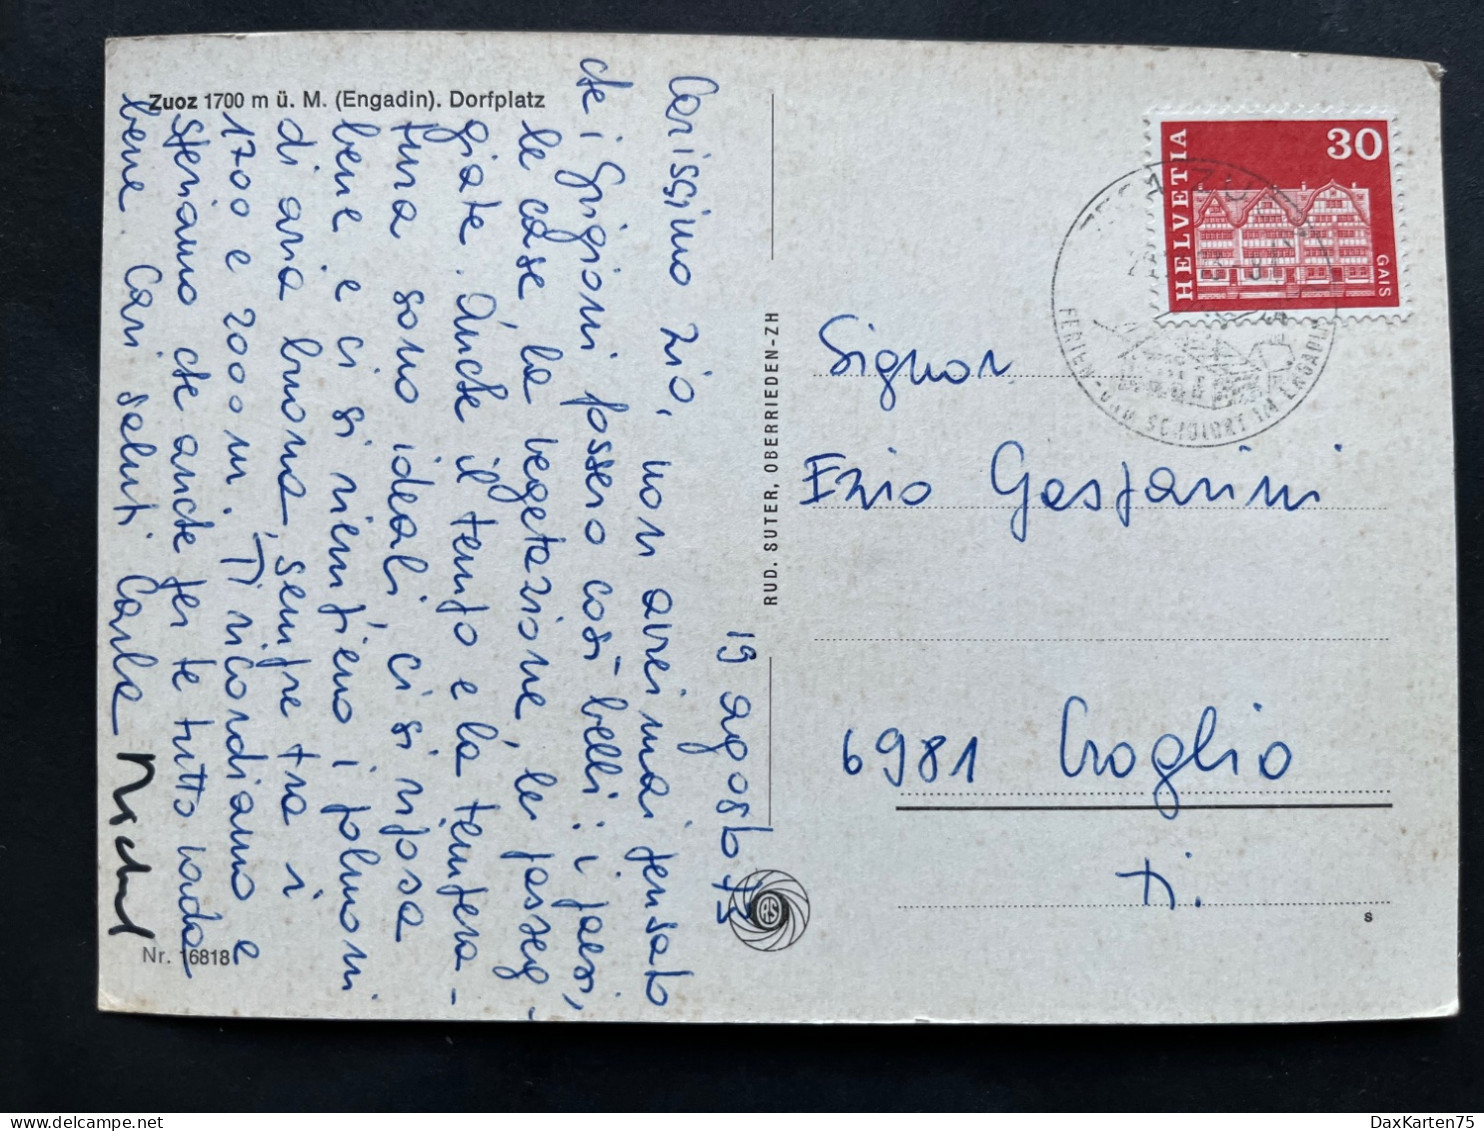 Zuoz 1700 m ü. M. (Engadin). Dorfplatz
19 agosto 73
Carissimo zio, non avrei mai pensato
che i Grigioni fossero così belli: i paesi,
le case, la vegetazione, le passeg-
giate. Anche il tempo e la tempera-
tura sono ideali, ci si riposa
bene e ci si riempiono i polmoni
di aria buona, sempre tra i
1700 e 2000 m. Ti ricordiamo e
speriamo che anche per te tutto vada
bene. Cari saluti Carla
Nr. 16818
RUD. SUTER, OBERRIEDEN-ZH
HELVETIA
30
GAIS
FERIEN- UND SCHULORT IM ENGADIN
Signor
Ezio Gasparini
6981 Croglio
Ti.
s
DaxKarten75